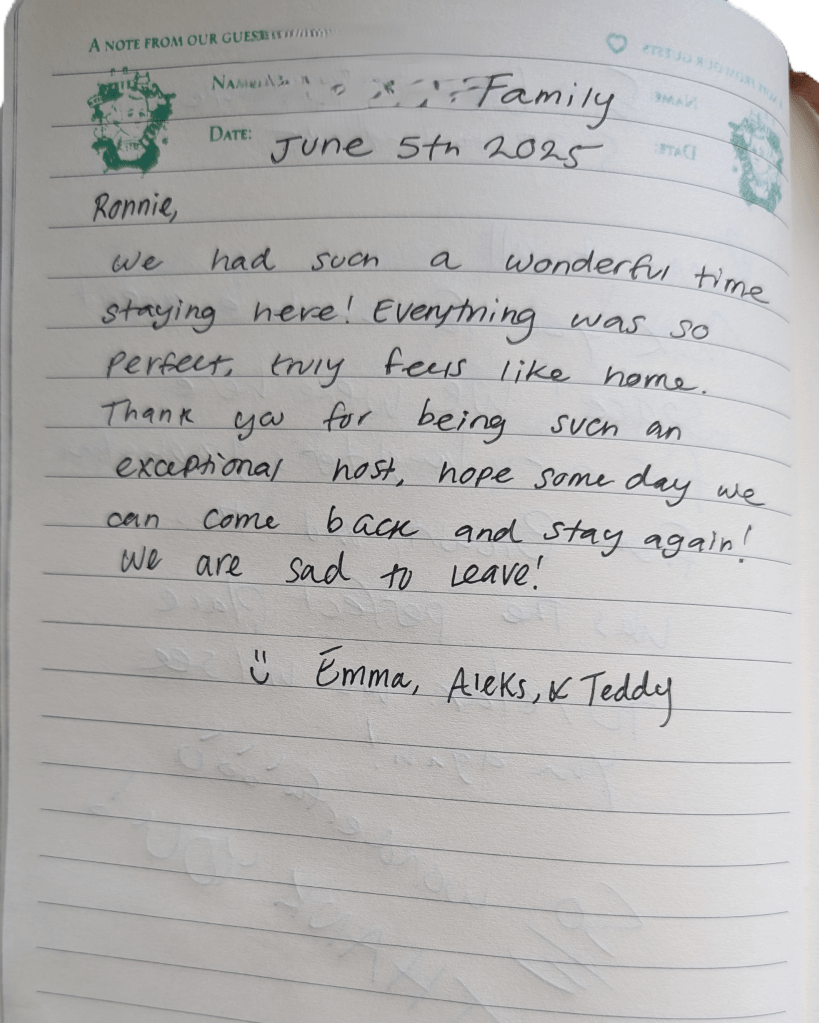 A NOTE FROM OUR GUESTS
Family
DATE: June 5th 2025
Ronnie,
We had such a wonderful time
staying here! Everything was so
perfect, truly feels like home.
Thank you for being such an
exceptional host, hope some day we
can come back and stay again!
We are sad to leave!
Emma, Aleks, & Teddy